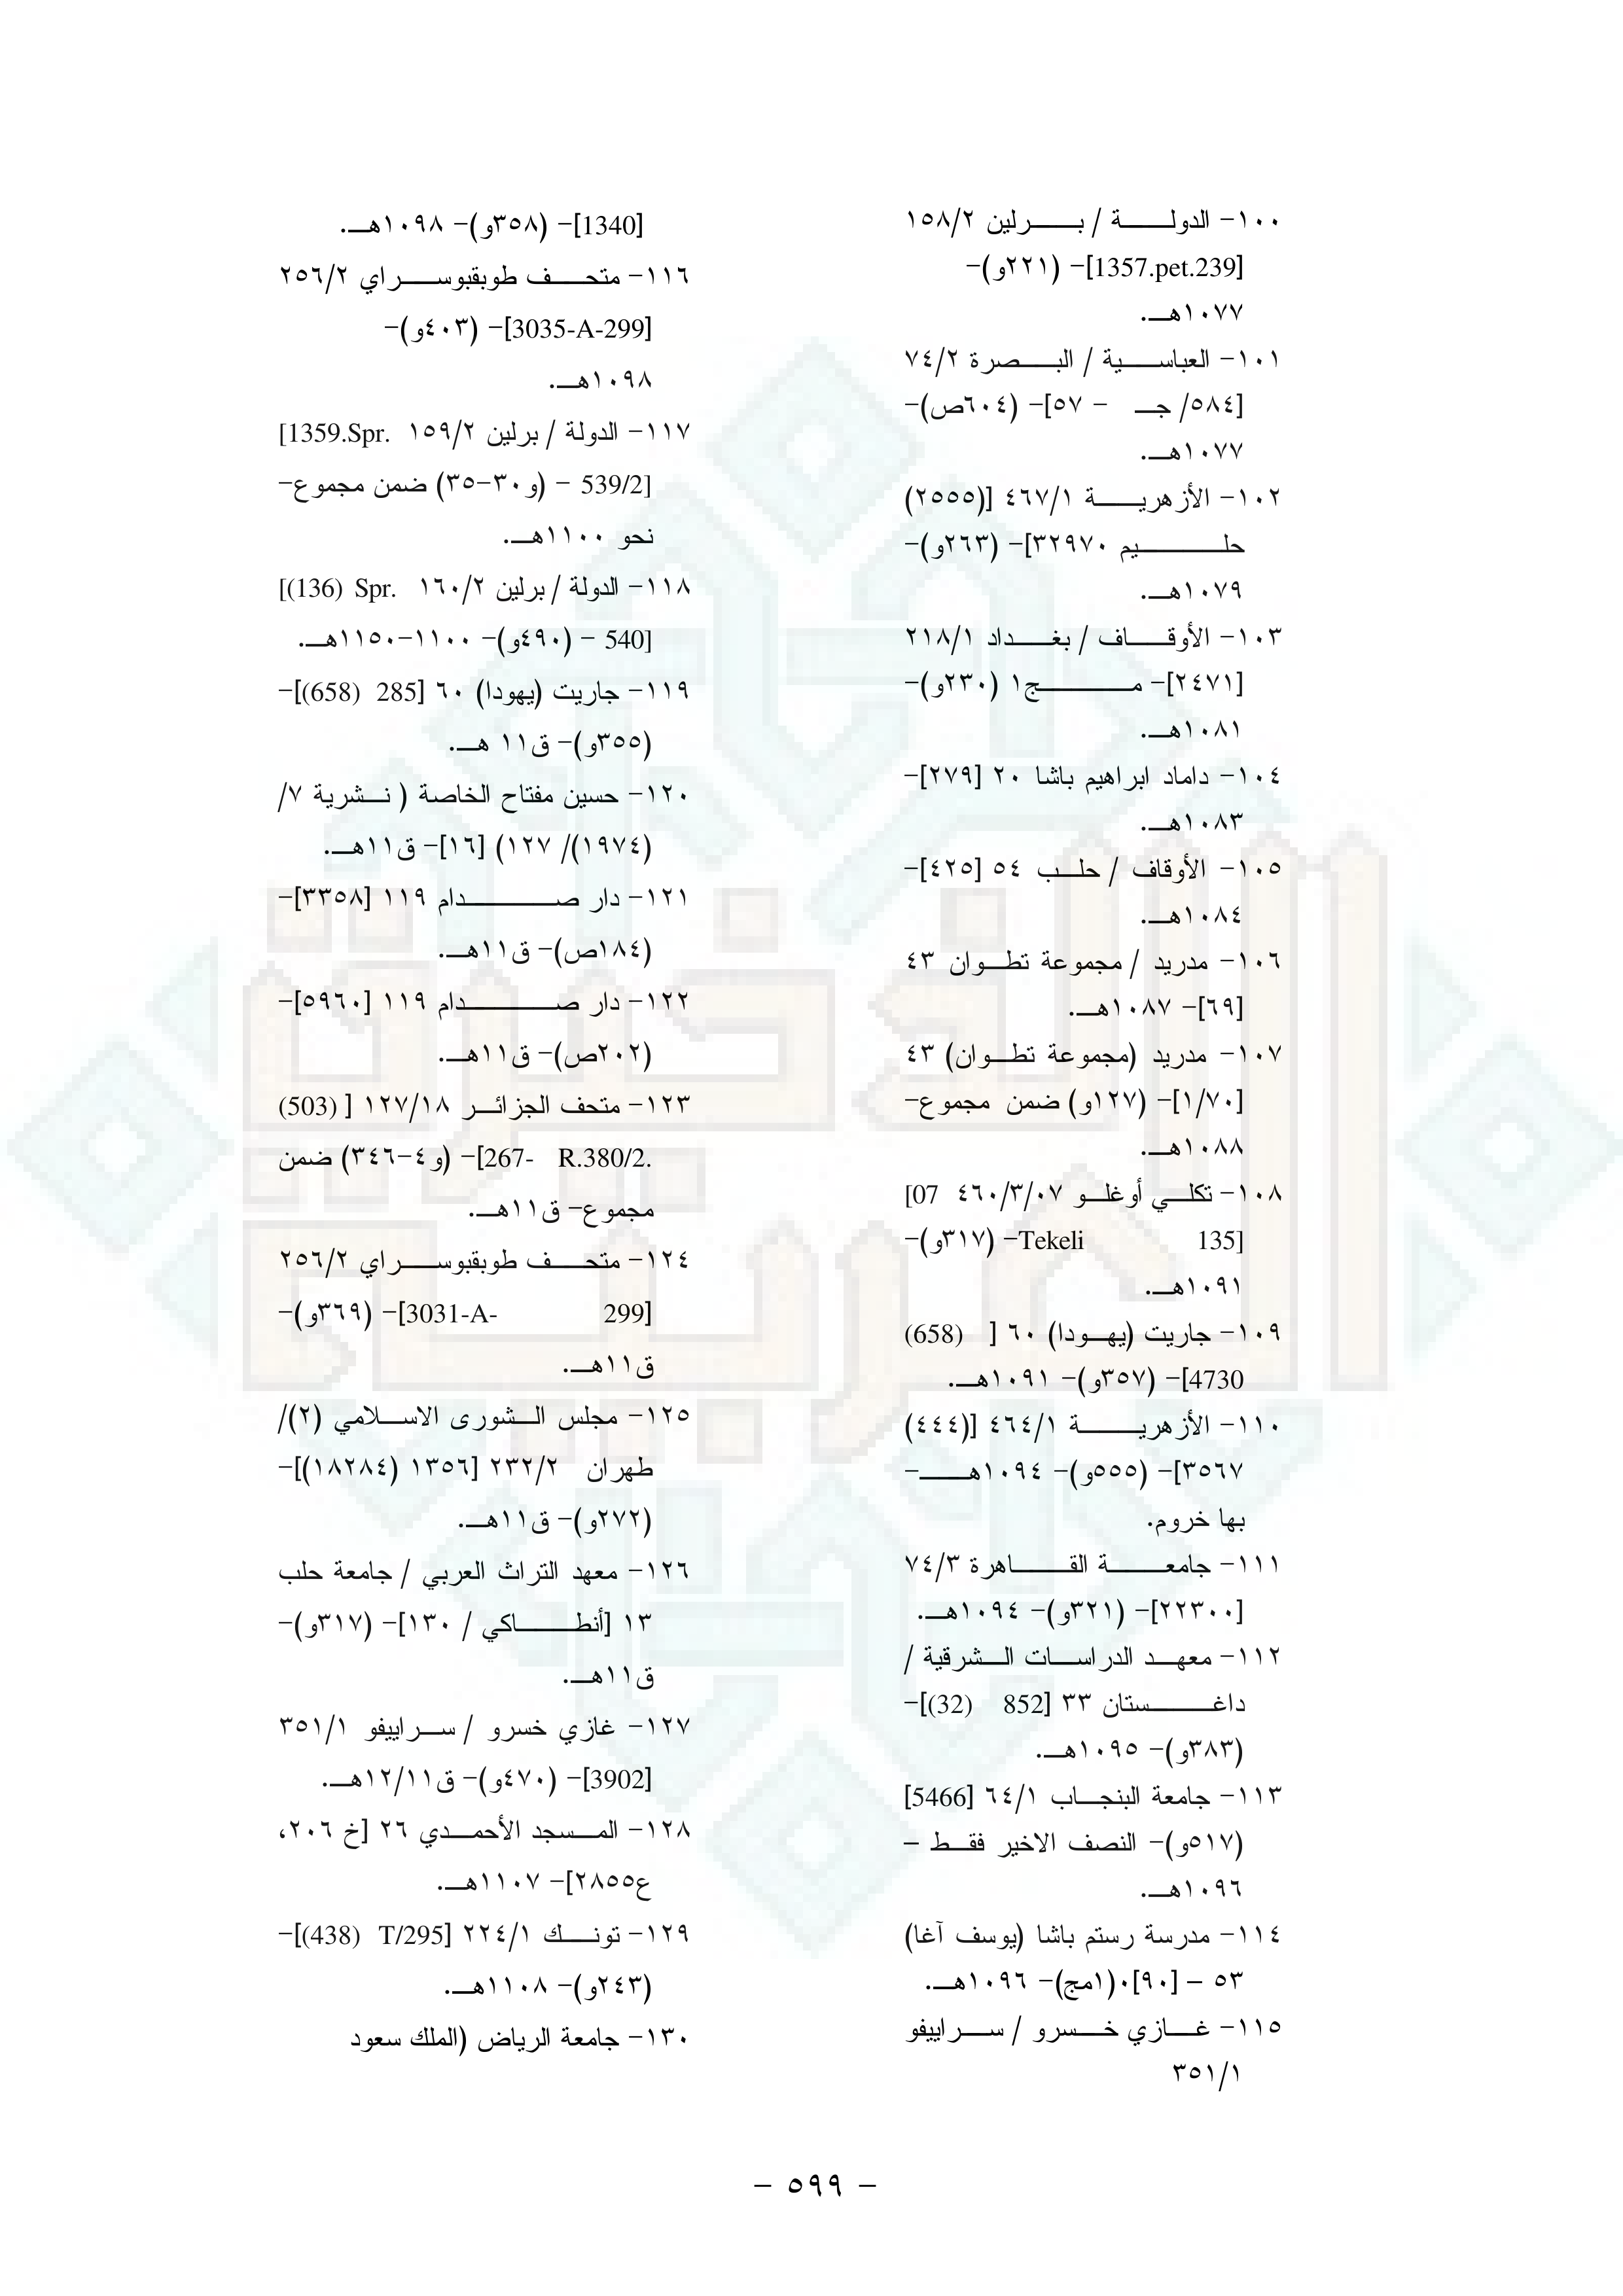 ١٠٠- الدولة / برلين ١٥٨/٢
[1357.pet.239]- (٢٢١و)-
١٠٧٧هـ.
١٠١- العباسية / البصرة ٧٤/٢
[٥٨٤/ جـ - ٥٧]- (٦٠٤ص)-
١٠٧٧هـ.
١٠٢- الأزهرية ٤٦٧/١ [(٢٥٥٥)
حليم ٣٢٩٧٠]- (٢٦٣و)-
١٠٧٩هـ.
١٠٣- الأوقاف / بغداد ٢١٨/١
[٢٤٧١]- مج١ (٢٣٠و)-
١٠٨١هـ.
١٠٤- داماد ابراهيم باشا ٢٠ [٢٧٩]-
١٠٨٣هـ.
١٠٥- الأوقاف / حلب ٥٤ [٤٢٥]-
١٠٨٤هـ.
١٠٦- مدريد / مجموعة تطوان ٤٣
[٦٩]- ١٠٨٧هـ.
١٠٧- مدريد (مجموعة تطوان) ٤٣
[١/٧٠]- (١٢٧و) ضمن مجموع-
١٠٨٨هـ.
١٠٨- تكلي أوغلو ٤٦٠/٣/٠٧ [07
Tekeli 135]- (٣١٧و)-
١٠٩١هـ.
١٠٩- جاريت (يهودا) ٦٠ [ (658)
4730]- (٣٥٧و)- ١٠٩١هـ.
١١٠- الأزهرية ٤٦٤/١ [(٤٤٤)
٣٥٦٧]- (٥٥٥و)- ١٠٩٤هـ-
بها خروم.
١١١- جامعة القاهرة ٧٤/٣
[٢٢٣٠٠]- (٣٢١و)- ١٠٩٤هـ.
١١٢- معهد الدراسات الشرقية /
داغستان ٣٣ [852 (32)]-
(٣٨٣و)- ١٠٩٥هـ.
١١٣- جامعة البنجاب ٦٤/١ [5466]
(٥١٧و)- النصف الاخير فقط –
١٠٩٦هـ.
١١٤- مدرسة رستم باشا (يوسف آغا)
٥٣ – [٩٠]٠(١مج)- ١٠٩٦هـ.
١١٥- غازي خسرو / سراييفو
٣٥١/١
[1340]- (٣٥٨و)- ١٠٩٨هـ.
١١٦- متحف طوبقبوسراي ٢٥٦/٢
[3035-A-299]- (٤٠٣و)-
١٠٩٨هـ.
١١٧- الدولة / برلين ١٥٩/٢ [1359.Spr.
539/2] – (و٣٠-٣٥) ضمن مجموع-
نحو ١١٠٠هـ.
١١٨- الدولة / برلين ١٦٠/٢ [(136) Spr.
540] – (٤٩٠و)- ١١٠٠-١١٥٠هـ.
١١٩- جاريت (يهودا) ٦٠ [285 (658)]-
(٣٥٥و)- ق١١ هـ.
١٢٠- حسين مفتاح الخاصة ( نشرية ٧/
(١٩٧٤)/ ١٢٧) [١٦]- ق١١هـ.
١٢١- دار صدام ١١٩ [٣٣٥٨]-
(١٨٤ص)- ق١١هـ.
١٢٢- دار صدام ١١٩ [٥٩٦٠]-
(٢٠٢ص)- ق١١هـ.
١٢٣- متحف الجزائر ١٢٧/١٨ [ (503)
267- R.380/2.]- (و٤-٣٤٦) ضمن
مجموع- ق١١هـ.
١٢٤- متحف طوبقبوسراي ٢٥٦/٢
[3031-A- 299]- (٣٦٩و)-
ق١١هـ.
١٢٥- مجلس الشورى الاسلامي (٢)/
طهران ٢٣٢/٢ [١٣٥٦ (١٨٢٨٤)]-
(٢٧٢و)- ق١١هـ.
١٢٦- معهد التراث العربي / جامعة حلب
١٣ [أنطاكي / ١٣٠]- (٣١٧و)-
ق١١هـ.
١٢٧- غازي خسرو / سراييفو ٣٥١/١
[3902]- (٤٧٠و)- ق١٢/١١هـ.
١٢٨- المسجد الأحمدي ٢٦ [خ ٢٠٦،
ع٢٨٥٥]- ١١٠٧هـ.
١٢٩- تونك ٢٢٤/١ [T/295 (438)]-
(٢٤٣و)- ١١٠٨هـ.
١٣٠- جامعة الرياض (الملك سعود
- ٥٩٩ -